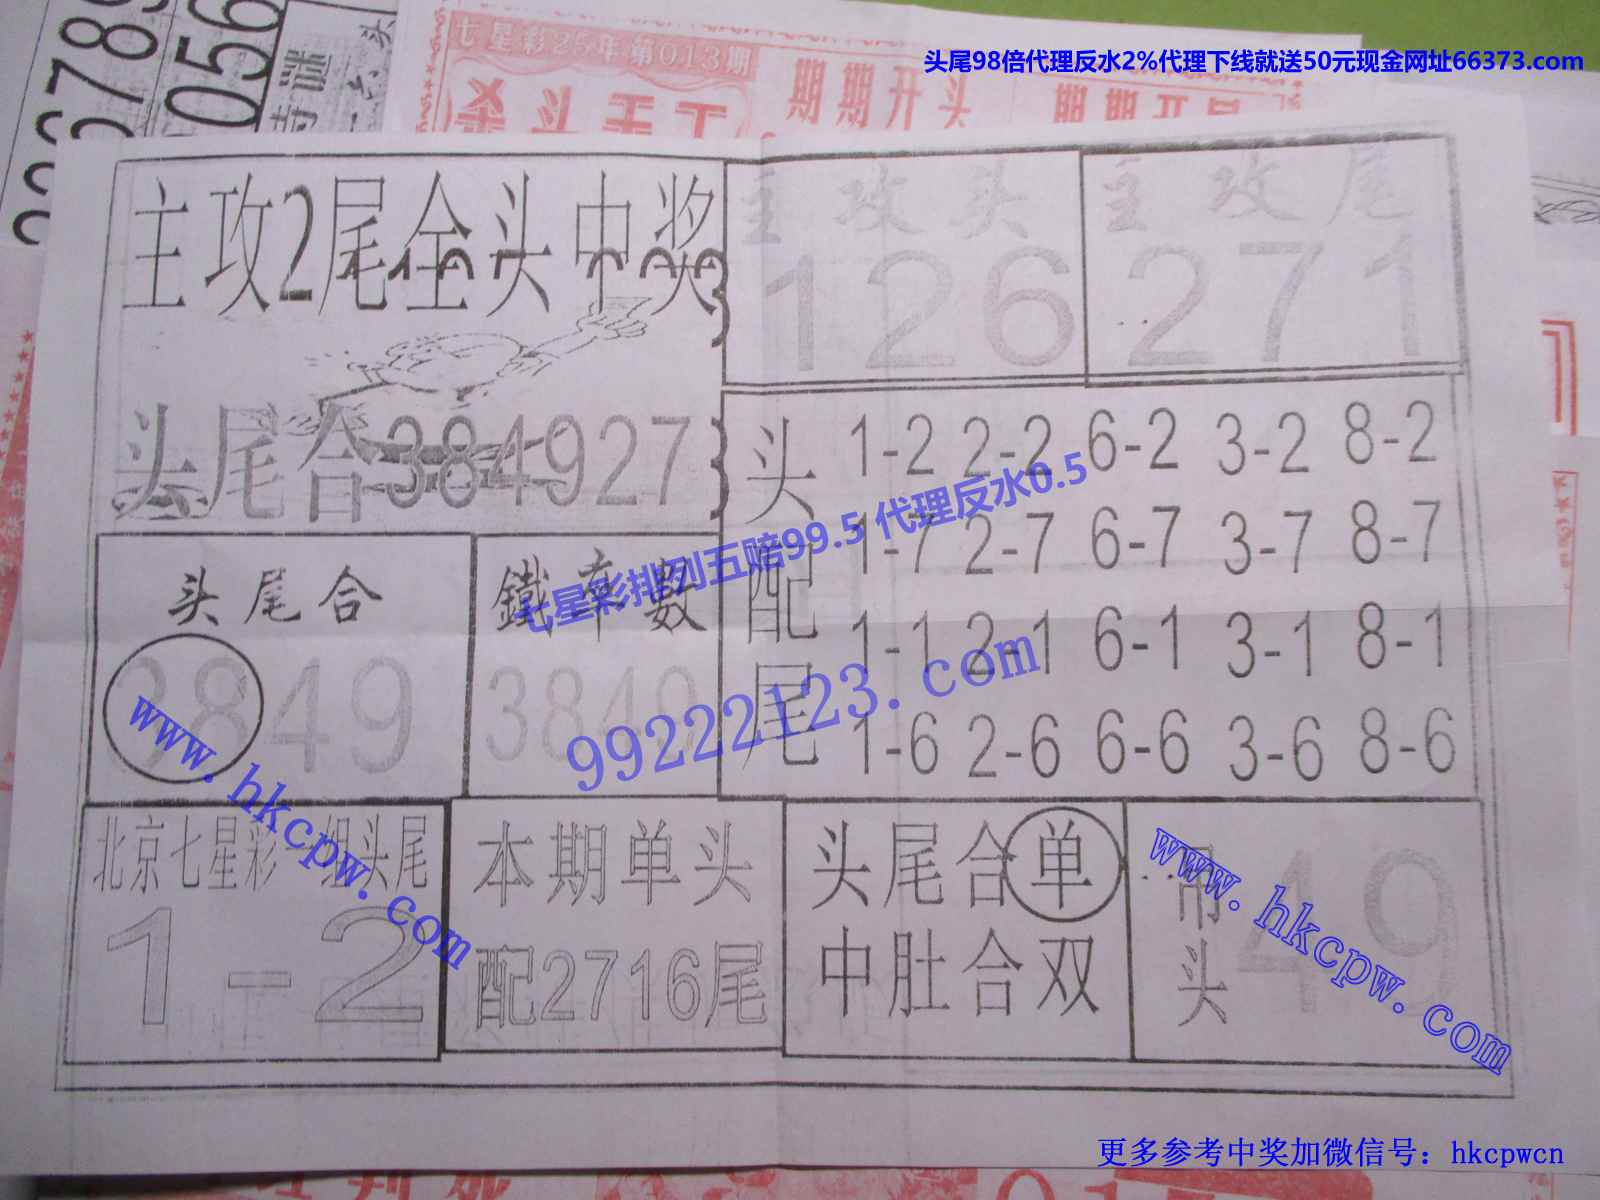 七星彩25年第013期
期期开头
头尾98倍代理反水2%代理下线就送50元现金网址66373.com
主攻2尾全头中奖
主攻头
126
主攻尾
271
头尾合384927
头配尾
1-2 2-2 6-2 3-2 8-2
1-7 2-7 6-7 3-7 8-7
1-1 2-1 6-1 3-1 8-1
1-6 2-6 6-6 3-6 8-6
七星彩排列五赔99.5 代理反水0.5
头尾合
3849
鐵率數
3849
99222123.com
www.hkcpw.com
北京七星彩一组头尾
1-2
本期单头
配2716尾
头尾合单
中肚合双
吊头
49
www.hkcpw.com
更多参考中奖加微信号：hkcpwcn